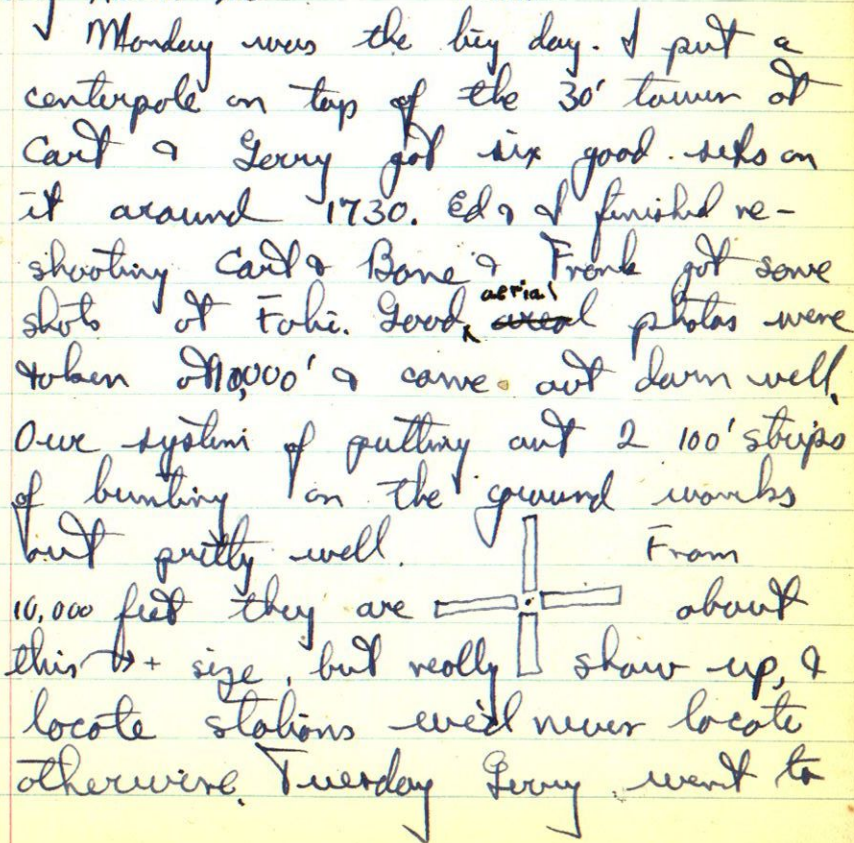 Monday was the big day. I put a
centerpole on top of the 30' tower at
Cart & Gerry got six good sets on
it around 1730. Ed & I finished re-
shooting Cart & Bone & Frank got some
shots at Fohi. Good aerial photos were
taken at 10,000' & came out darn well.
Our system of putting out 2 100' strips
of bunting on the ground works
out pretty well. From
10,000 feet they are about
this → + size, but really show up, &
locate stations we'd never locate
otherwise. Tuesday Gerry went to